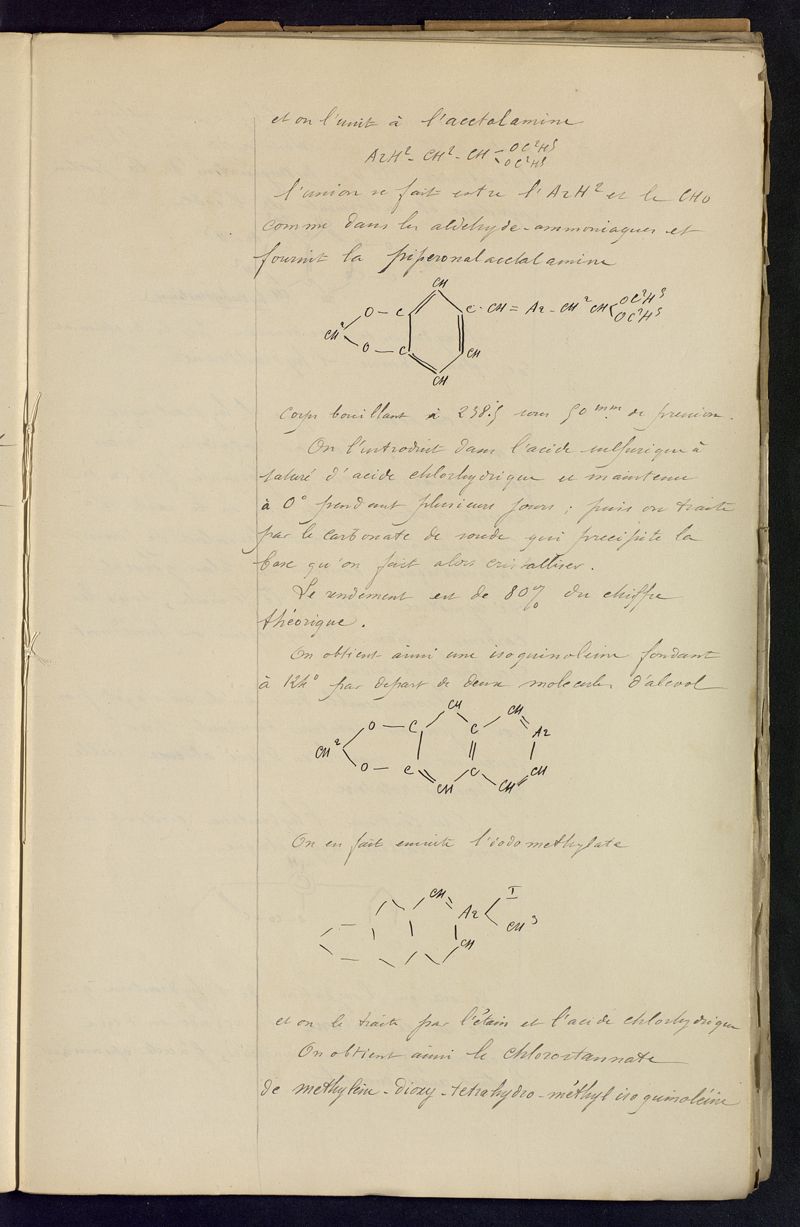 et on l'unit à l'acetalamine
AzH² - CH² - CH OC²H⁵
OC²H⁵
l'union se fait entre l'AzH² et le CHO
comme dans les aldehyde-ammoniaques et
fournit la piperonalacetalamine
CH
CH² O - C C - CH = Az - CH² CH OC²H⁵
OC²H⁵
O - C CH
CH
Corps bouillant à 238.5 sous 50 mm de pression.
On l'introduit dans l'acide sulfurique à
saturé d'acide chlorhydrique et maintenu
à 0° pendant plusieurs jours ; puis on traite
par le carbonate de soude qui précipite la
base qu'on fait alors cristalliser.
Le rendement est de 80% du chiffre
théorique.
On obtient ainsi une isoquinoleine fondant
à 124° par depart de deux molecules d'alcool
CH CH
O - C C Az
CH²
O - C C CH
CH CH
On en fait ensuite l'iodomethylate
CH I
Az
CH³
CH
et on le traite par l'étain et l'acide chlorhydrique
On obtient ainsi le chlorostannate
de methylène-dioxy-tetrahydro-méthyl isoquinoléine